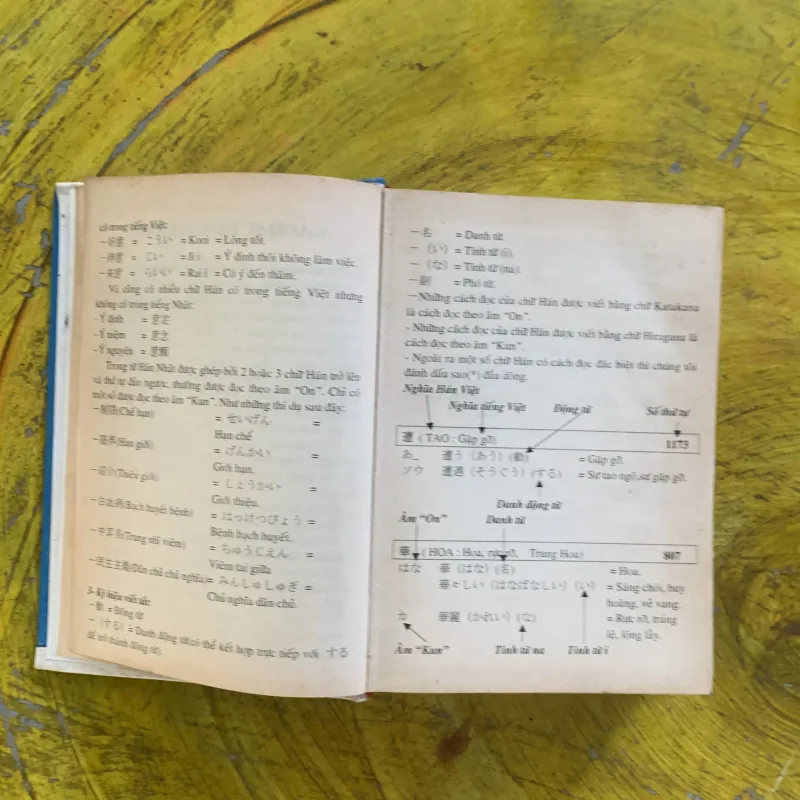 có trong tiếng Việt:
一好意 = こうい = Kooi = Lòng tốt.
一辞意 = じい = Ji i = Ý định thôi không làm việc.
一来意 = らいい = Rai i = Có ý đến thăm.
Và cũng có nhiều chữ Hán có trong tiếng Việt nhưng
không có trong tiếng Nhật:
- Ý định = 意定
- Ý niệm = 意念
- Ý nguyện = 意願
Trong từ Hán Nhật được ghép bởi 2 hoặc 3 chữ Hán trở lên
và thứ tự đảo ngược, thường được đọc theo âm "On". Chỉ có
một số được đọc theo âm "Kun". Như những thí dụ sau đây:
一制限(Chế hạn) = せいげん =
Hạn chế
一限界(Hạn giới) = げんかい =
Giới hạn.
一紹介(Thiệu giới) = しょうかい =
Giới thiệu.
一白血病(Bạch huyết bệnh) = はっけつびょう =
Bệnh bạch huyết.
一中耳炎(Trung nhĩ viêm) = ちゅうじえん =
Viêm tai giữa
一民主主義(Dân chủ chủ nghĩa)= みんしゅしゅぎ =
Chủ nghĩa dân chủ.
3- Ký hiệu viết tắt:
一動 = Động từ
一 (する) = Danh động từ(có thể kết hợp trực tiếp với する
để trở thành động từ).
一名 = Danh từ.
一 (い) = Tính từ (i).
一 (な) = Tính từ (na).
一副 = Phó từ.
一Những cách đọc của chữ Hán được viết bằng chữ Katakana
là cách đọc theo âm "On".
- Những cách đọc của chữ Hán được viết bằng chữ Hiragana là
cách đọc theo âm "Kun".
- Ngoài ra một số chữ Hán có cách đọc đặc biệt thì chúng tôi
đánh dấu sao(*) đầu dòng.
Nghĩa Hán Việt
Nghĩa tiếng Việt Động từ Số thứ tự
遭 ( TAO : Gặp gỡ) 1173
あ_ 遭う (あう) (動) = Gặp gỡ.
ソウ 遭遇 (そうぐう) (する) = Sự tao ngộ,sự gặp gỡ.
Danh động từ
Âm "On" Danh từ
華 ( HOA : Hoa, rực rỡ, Trung Hoa) 807
はな 華 (はな) (名) = Hoa.
華々しい (はなばなしい) (い) = Sáng chói, huy
hoàng, vẻ vang.
カ 華麗 (かれい) (な) = Rực rỡ, tráng
lệ, lộng lẫy.
Âm "Kun" Tính từ na Tính từ i